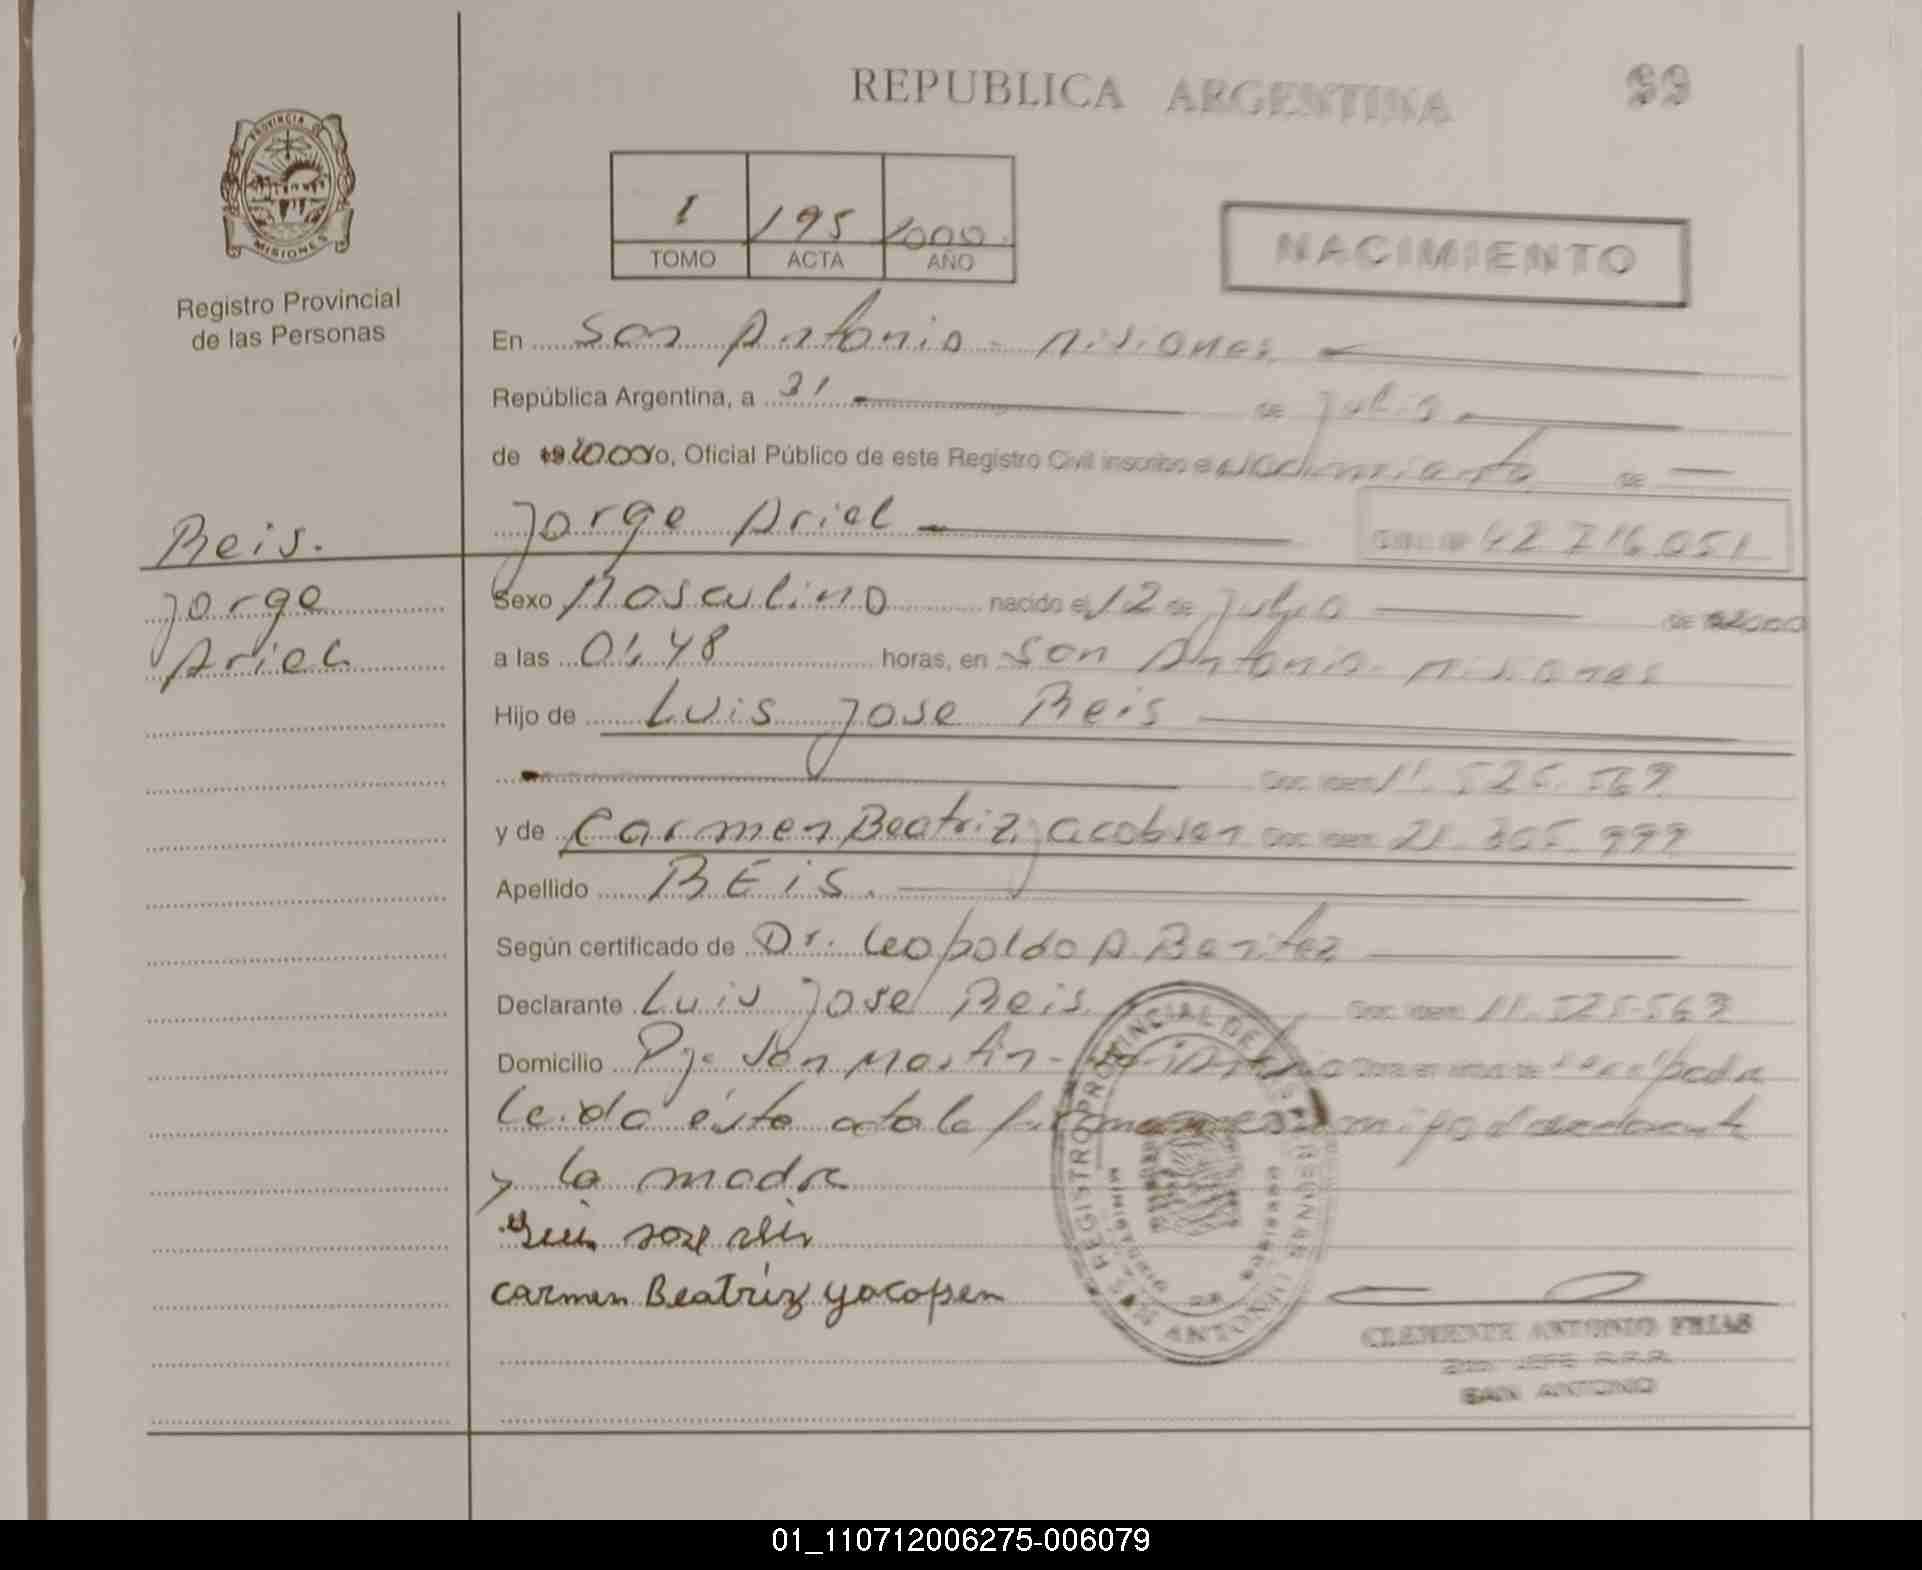 REPUBLICA ARGENTINA
99
PROVINCIA DE
MISIONES
Registro Provincial
de las Personas
1 195 2000
TOMO ACTA AÑO
NACIMIENTO
En San Antonio - Misiones
República Argentina, a 31 de Julio
de 2.000 Yo, Oficial Público de este Registro Civil inscribo el Nacimiento de
Jorge Ariel 42.716.051
Reis.
Jorge
Ariel
Sexo Masculino nacido el 12 de Julio de 2000
a las 01,48 horas, en San Antonio - Misiones
Hijo de Luis Jose Reis
Doc. Iden. 11.525.569
y de Carmen Beatriz Jacobsen Doc. Iden. 21.305.999
Apellido REiS.
Según certificado de Dr. Leopoldo A. Benitez
Declarante Luis Jose Reis Doc. Iden. 11.525.569
Domicilio Pje San Martin - Obra en virtud de
Leida ésta acta la firman conmigo el declarante
y la madre
Carmen Beatriz yacopsen
REGISTRO PROVINCIAL DE LAS PERSONAS
SAN ANTONIO
MISIONES
CLEMENTE ANTONIO FRIAS
2do JEFE R.P.P.
SAN ANTONIO
01_110712006275-006079